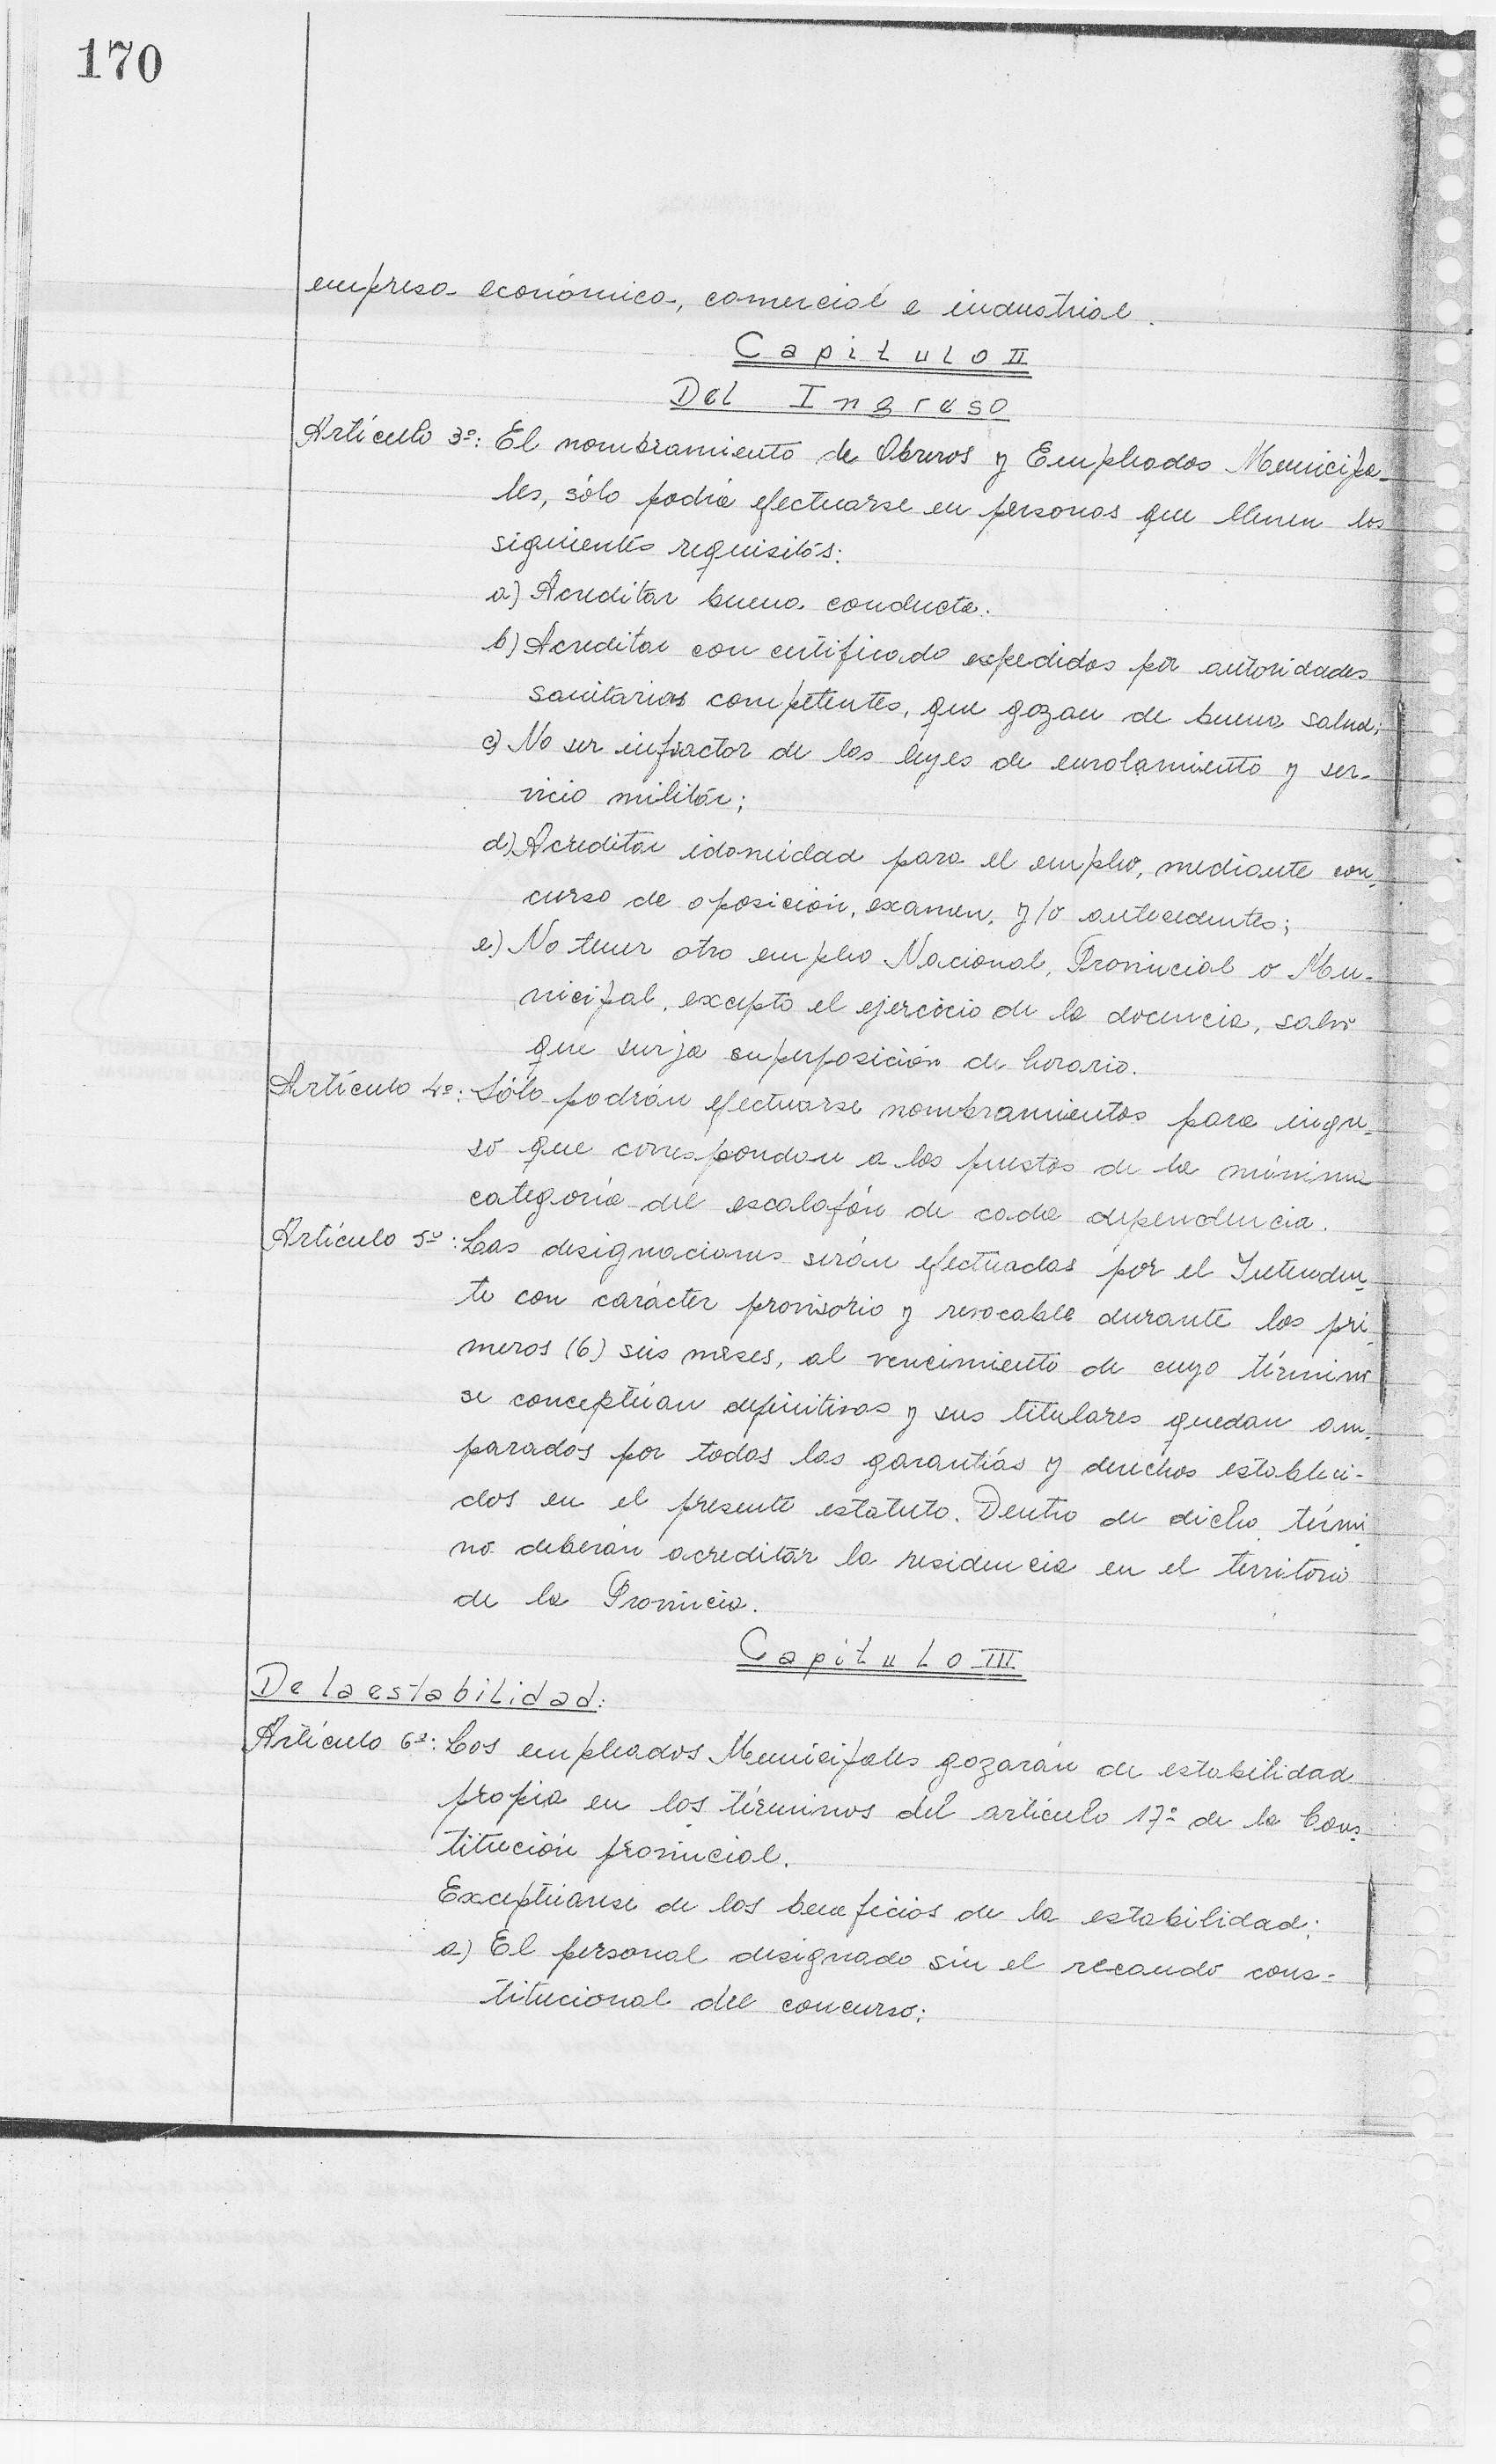 170
empresa económica, comercial e industrial.
Capitulo II
Del Ingreso
Artículo 3º: El nombramiento de Obreros y Empleados Municipa-
les, sólo podrá efectuarse en personas que llenen los
siguientes requisitos:
a) Acreditar buena conducta.
b) Acreditar con certificado expedidos por autoridades
sanitarias competentes, que gozan de buena salud;
c) No ser infractor de las leyes de enrolamiento y ser-
vicio militar;
d) Acreditar idoneidad para el empleo, mediante con-
curso de oposición, examen, y/o antecedentes;
e) No tener otro empleo Nacional, Provincial o Mu-
nicipal, excepto el ejercicio de la docencia, salvo
que surja superposición de horario.
Artículo 4º: Sólo podrán efectuarse nombramientos para ingre-
so que correspondan a los puestos de la mínima
categoría del escalafón de cada dependencia.
Artículo 5º: Las designaciones serán efectuadas por el Intenden-
te con carácter provisorio y revocable durante los pri-
meros (6) seis meses, al vencimiento de cuyo término
se conceptúan definitivas y sus titulares quedan am-
parados por todas las garantías y derechos estableci-
dos en el presente estatuto. Dentro de dicho térmi-
no deberán acreditar la residencia en el territorio
de la Provincia.
Capitulo III
De la estabilidad:
Artículo 6º: Los empleados Municipales gozarán de estabilidad
propia en los términos del artículo 17º de la Cons-
titución provincial.
Exceptúanse de los beneficios de la estabilidad:
a) El personal designado sin el recaudo cons-
titucional del concurso;